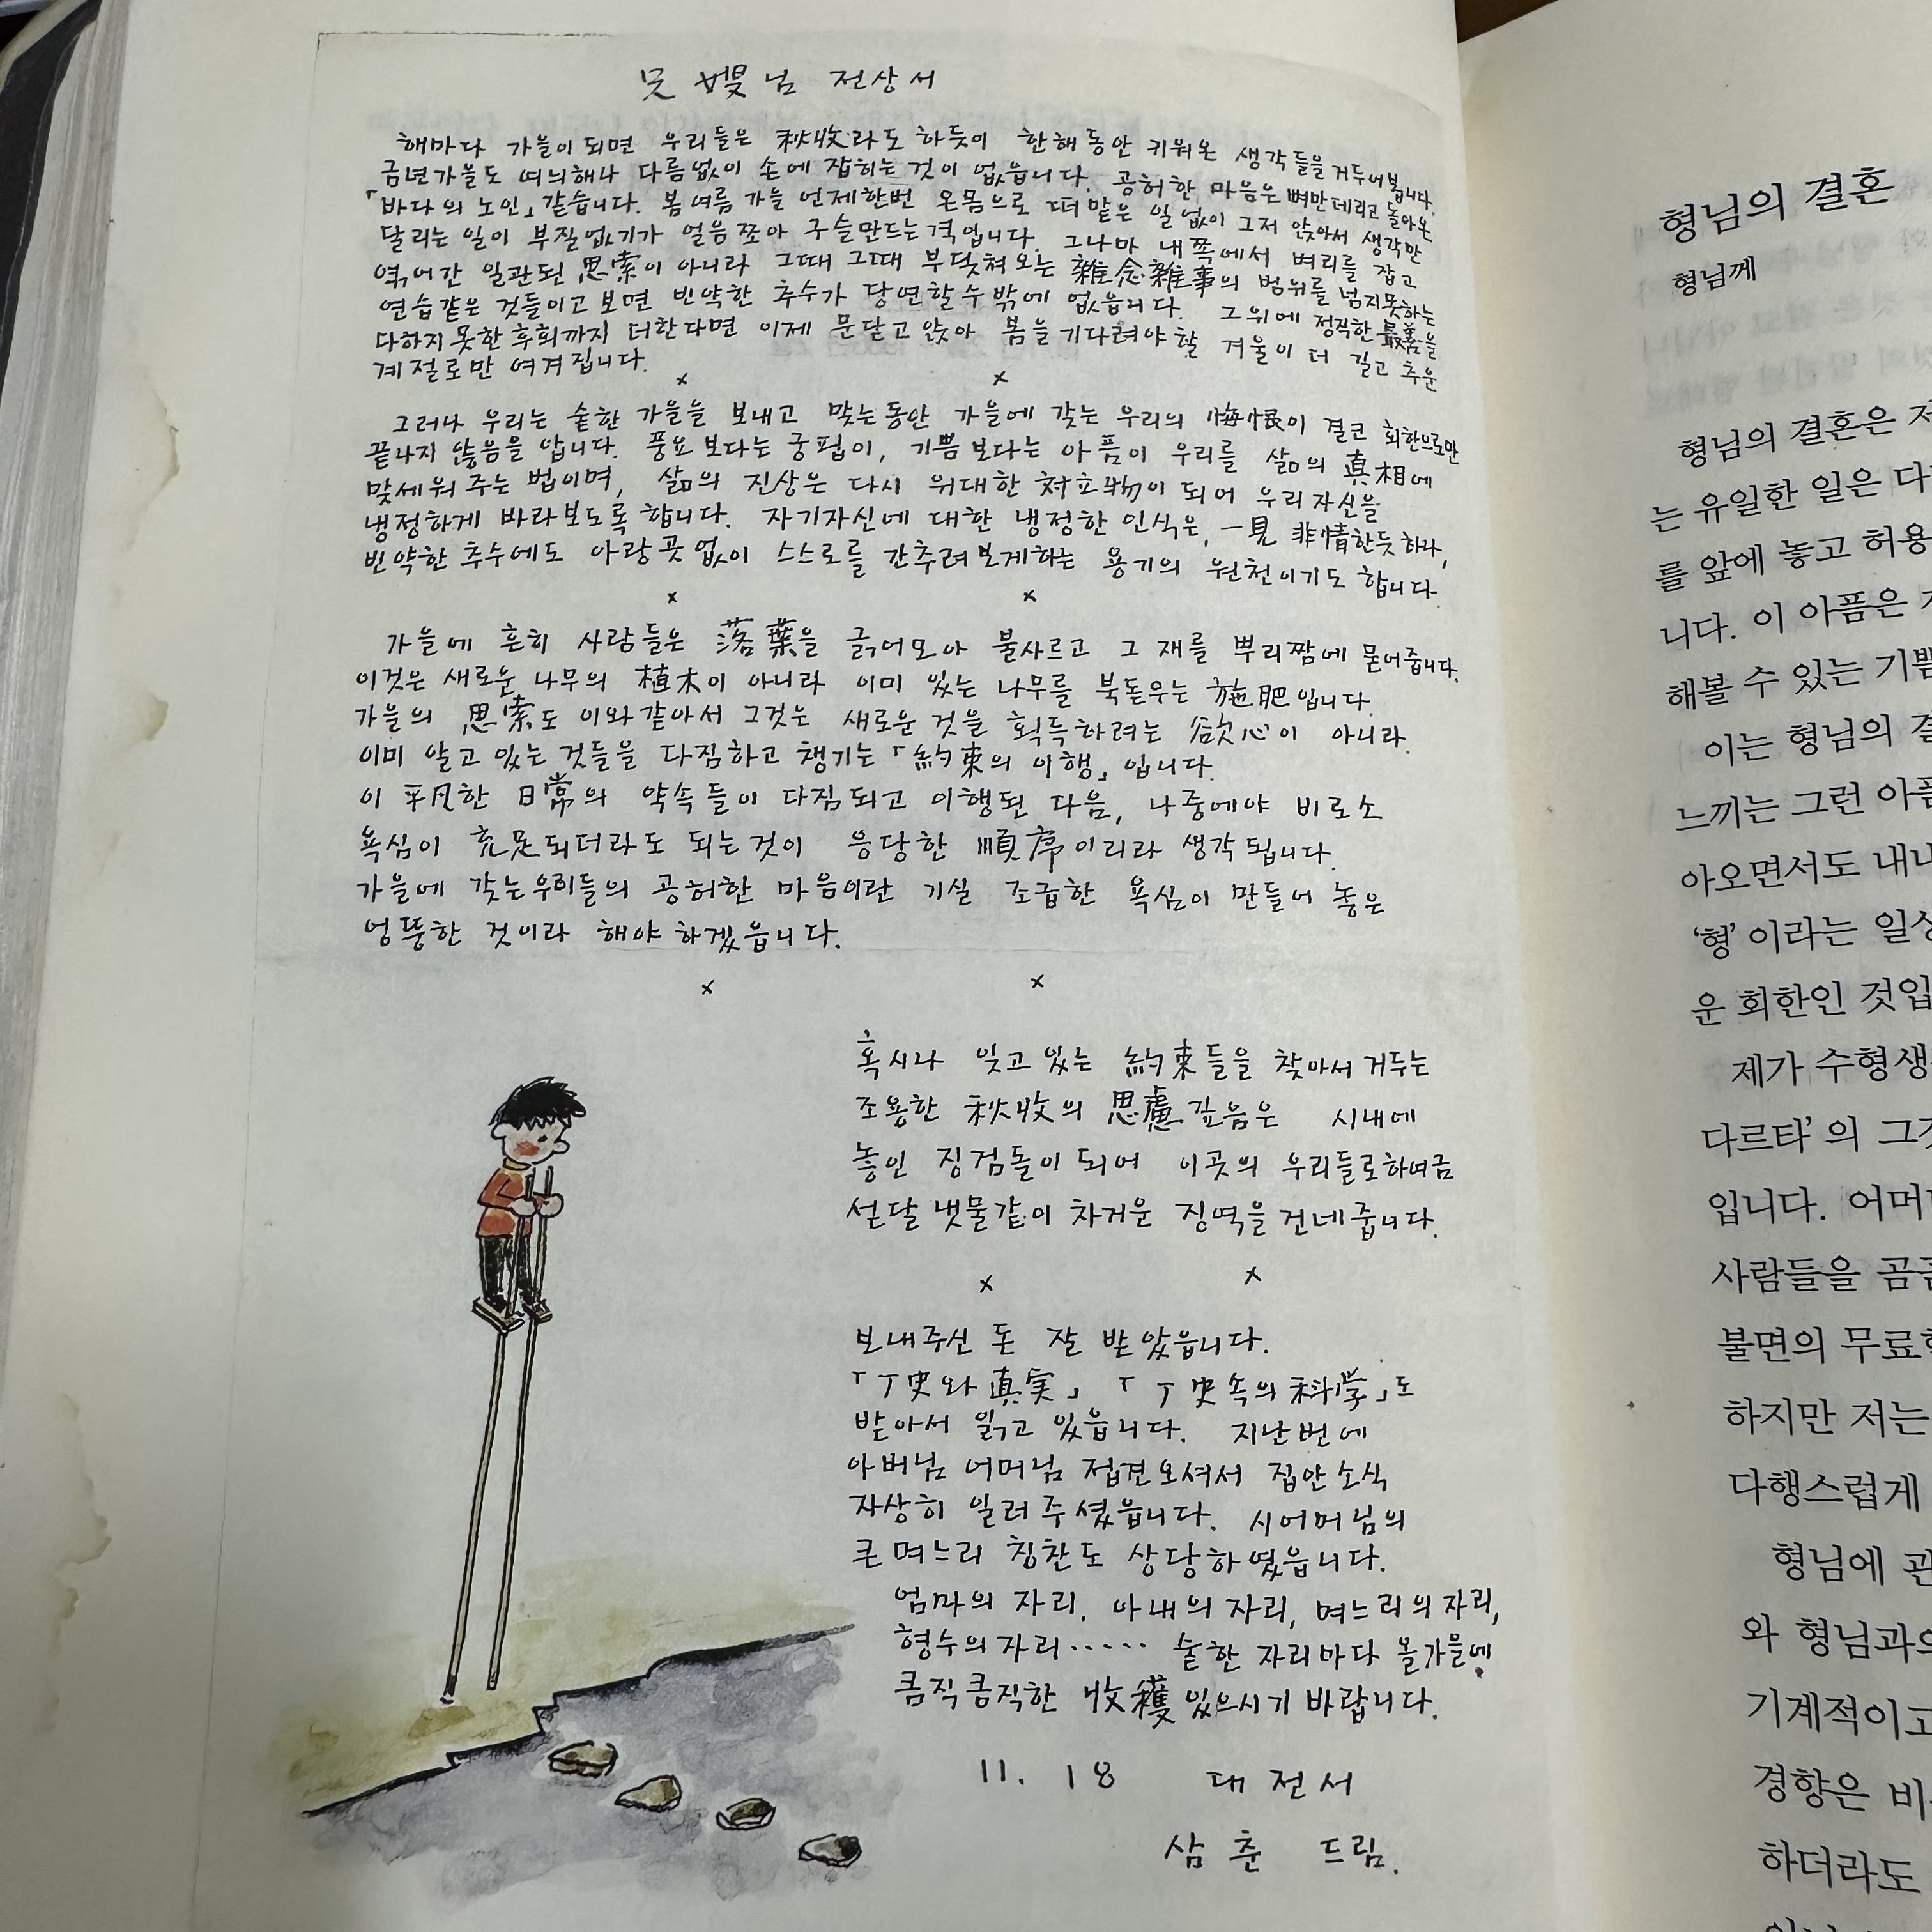 兄嫂님 전상서
해마다 가을이 되면 우리들은 秋收라도 하듯이 한해동안 키워온 생각들을 거두어봅니다.
금년가을도 여늬해나 다름없이 손에 잡히는 것이 없읍니다. 공허한 마음은 뼈만 데리고 돌아온
「바다의 노인」같습니다. 봄 여름 가을 언제한번 온몸으로 떠맡은 일 없이 그저 앉아서 생각만
달리는 일이 부질없기가 얼음 쪼아 구슬만드는 격입니다. 그나마 내쪽에서 벼리를 잡고
엮어간 일관된 思索이 아니라 그때 그때 부딪쳐오는 雜念雜事의 범위를 넘지못하는
연습같은 것들이고 보면 빈약한 추수가 당연할 수 밖에 없읍니다. 그위에 정직한 最善을
다하지 못한 후회까지 더한다면 이제 문닫고 앉아 봄을 기다려야 할 겨울이 더 길고 추운
계절로만 여겨집니다.
× ×
그러나 우리는 숱한 가을을 보내고 맞는동안 가을에 갖는 우리의 悔恨이 결코 회한으로만
끝나지 않음을 압니다. 풍요보다는 궁핍이, 기쁨보다는 아픔이 우리를 삶의 眞相에
맞세워 주는 법이며, 삶의 진상은 다시 위대한 対立物이 되어 우리자신을
냉정하게 바라보도록 합니다. 자기자신에 대한 냉정한 인식은, 一見 非情한듯 하나,
빈약한 추수에도 아랑곳없이 스스로를 간추려보게하는 용기의 원천이기도 합니다.
× ×
가을에 흔히 사람들은 落葉을 긁어모아 불사르고 그 재를 뿌리짬에 묻어줍니다.
이것은 새로운 나무의 植木이 아니라 이미 있는 나무를 북돋우는 施肥입니다.
가을의 思索도 이와같아서 그것은 새로운 것을 획득하려는 欲心이 아니라
이미 알고 있는 것들을 다짐하고 챙기는 「約束의 이행」입니다.
이 平凡한 日常의 약속들이 다짐되고 이행된 다음, 나중에야 비로소
욕심이 充足되더라도 되는것이 응당한 順序이리라 생각됩니다.
가을에 갖는우리들의 공허한 마음이란 기실 조급한 욕심이 만들어 놓은
엉뚱한 것이라 해야 하겠읍니다.
× ×
혹시나 잊고 있는 約束들을 찾아서 거두는
조용한 秋收의 思慮깊음은 시내에
놓인 징검돌이 되어 이곳의 우리들로하여금
섣달 냇물같이 차거운 징역을 건네줍니다.
× ×
보내주신 돈 잘 받았읍니다.
「丆史와 真実」 「丆史속의 科学」도
받아서 읽고 있읍니다. 지난번에
아버님 어머님 접견오셔서 집안소식
자상히 일러 주셨읍니다. 시어머님의
큰며느리 칭찬도 상당하였읍니다.
엄마의 자리. 아내의 자리, 며느리의 자리,
형수의 자리······ 숱한 자리마다 올가을에
큼직큼직한 收穫 있으시기 바랍니다.
11. 18 대전서
삼춘 드림.
형님의 결혼
형님께
형님의 결혼은
는 유일한 일은
를 앞에 놓고 허용
니다. 이 아픔은
해볼 수 있는 기쁨
이는 형님의
느끼는 그런
아오면서도 내내
'형' 이라는
운 회한인
제가
다르타' 의
입니다.
사람들을
불면의
하지만 저는
다행스럽게
형님에
와
기계적이고
경향은
하더라도